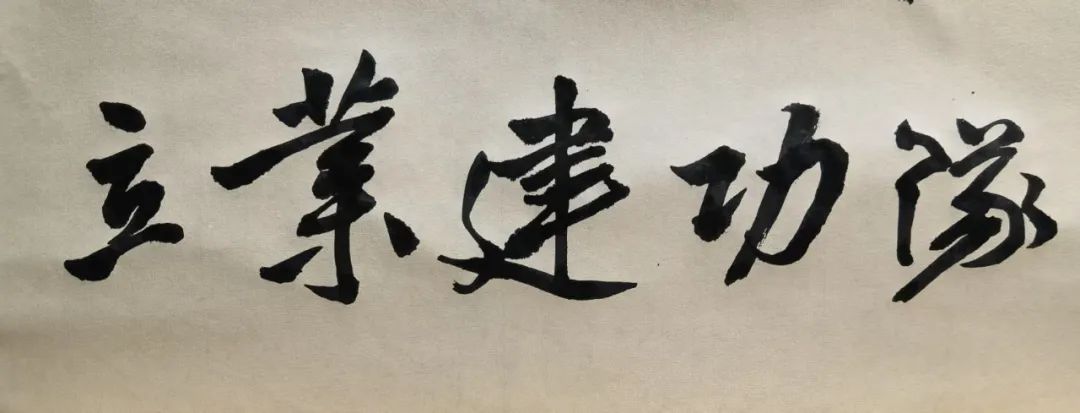 立業建功隊